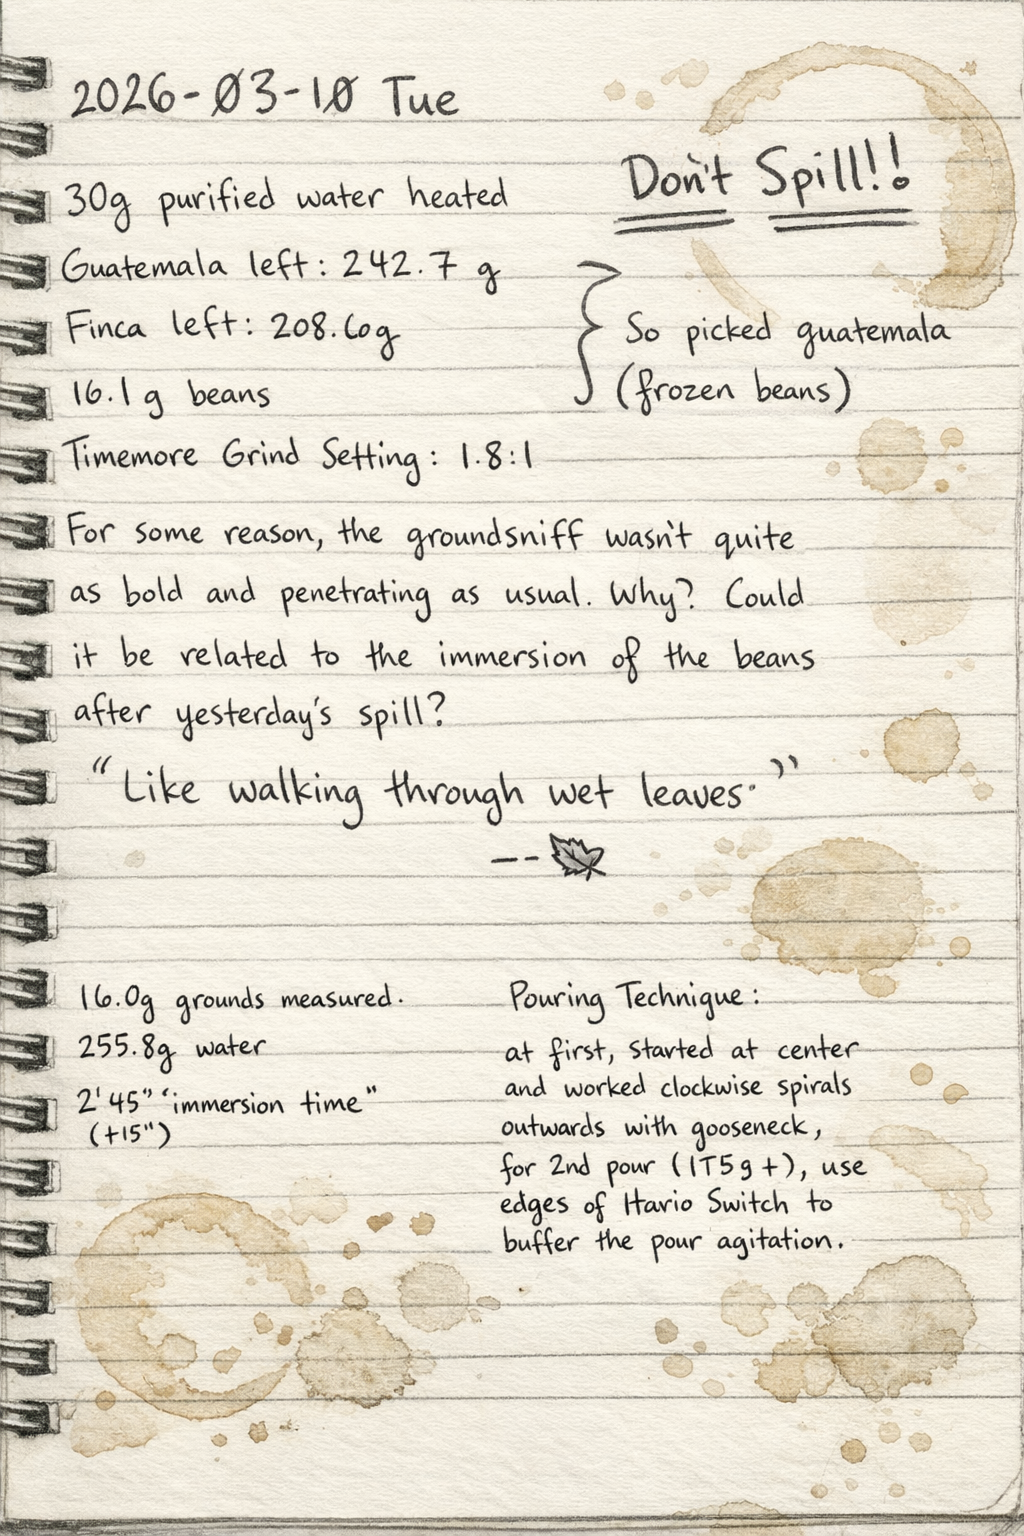 2026-03-10 Tue
Don't Spill!!
30g purified water heated
Guatemala left: 242.7 g
Finca left: 208.60g
16.1 g beans
So picked guatemala
(frozen beans)
Timemore Grind Setting: 1.8:1
For some reason, the groundsniff wasn't quite
as bold and penetrating as usual. Why? Could
it be related to the immersion of the beans
after yesterday's spill?
"Like walking through wet leaves."
--
16.0g grounds measured.
255.8g water
2'45" "immersion time"
(+15")
Pouring Technique:
at first, started at center
and worked clockwise spirals
outwards with gooseneck,
for 2nd pour (1T5g+), use
edges of Hario Switch to
buffer the pour agitation.